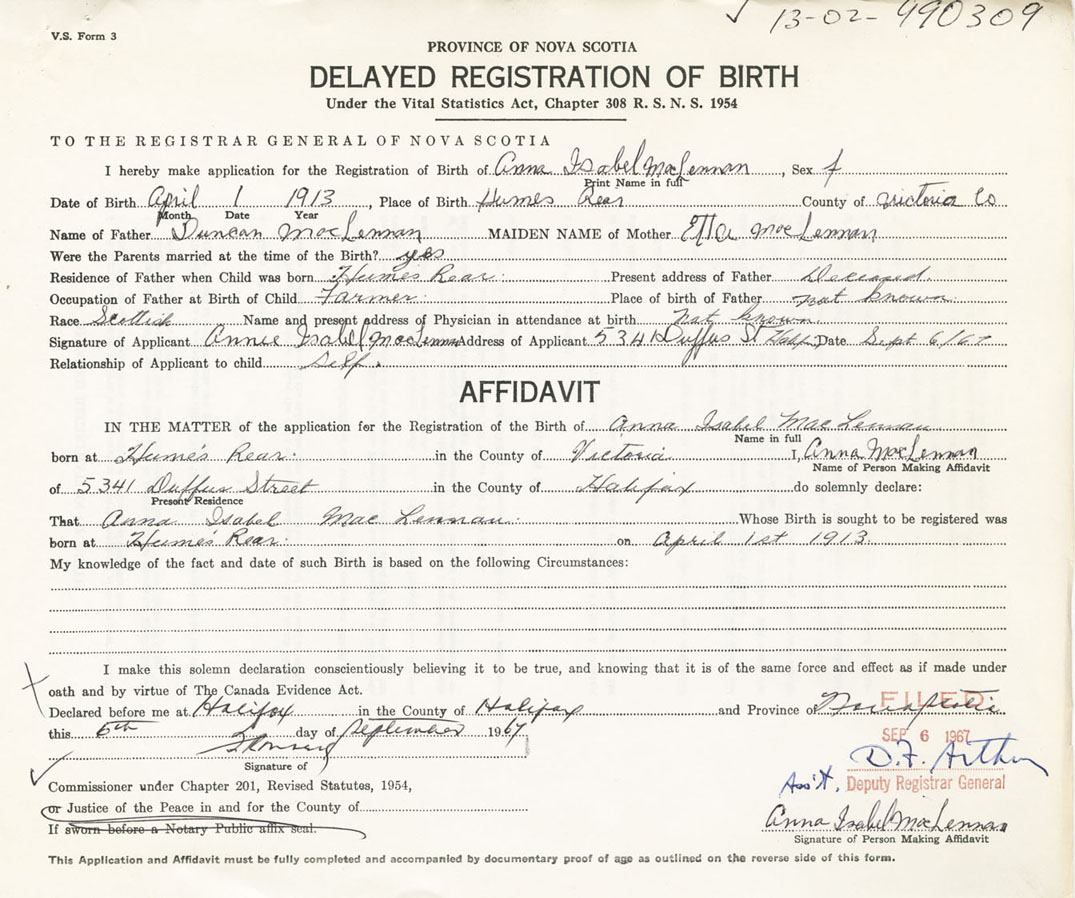 V.S. Form 3
13-02-990309
PROVINCE OF NOVA SCOTIA
DELAYED REGISTRATION OF BIRTH
Under the Vital Statistics Act, Chapter 308 R. S. N. S. 1954
TO THE REGISTRAR GENERAL OF NOVA SCOTIA
I hereby make application for the Registration of Birth of Anna Isabel MacLennan, Sex f
Print Name in full
Date of Birth April 1 1913, Place of Birth Humes Rear County of Victoria Co
Month Date Year
Name of Father Duncan MacLennan MAIDEN NAME of Mother Etta MacLennan
Were the Parents married at the time of the Birth? yes
Residence of Father when Child was born Humes Rear. Present address of Father Deceased
Occupation of Father at Birth of Child Farmer. Place of birth of Father not known.
Race Scottish Name and present address of Physician in attendance at birth not known
Signature of Applicant Annie Isabel MacLennan Address of Applicant 5341 Duffus St Halifx Date Sept 6/67
Relationship of Applicant to child Self.
AFFIDAVIT
IN THE MATTER of the application for the Registration of the Birth of Anna Isabel MacLennan
Name in full
born at Hume's Rear. in the County of Victoria I, Anna MacLennan
Name of Person Making Affidavit
of 5341 Duffus Street in the County of Halifax do solemnly declare:
Present Residence
That Anna Isabel MacLennan. Whose Birth is sought to be registered was
born at Hume's Rear. on April 1st 1913.
My knowledge of the fact and date of such Birth is based on the following Circumstances:
I make this solemn declaration conscientiously believing it to be true, and knowing that it is of the same force and effect as if made under
oath and by virtue of The Canada Evidence Act.
Declared before me at Halifax in the County of Halifax and Province of Nova Scotia
FILED
this 6th day of September 1967
SEP 6 1967
D.F. Arthur
Signature of
Ass't. Deputy Registrar General
Commissioner under Chapter 201, Revised Statutes, 1954,
or Justice of the Peace in and for the County of
Anna Isabel MacLennan
If sworn before a Notary Public affix seal.
Signature of Person Making Affidavit
This Application and Affidavit must be fully completed and accompanied by documentary proof of age as outlined on the reverse side of this form.